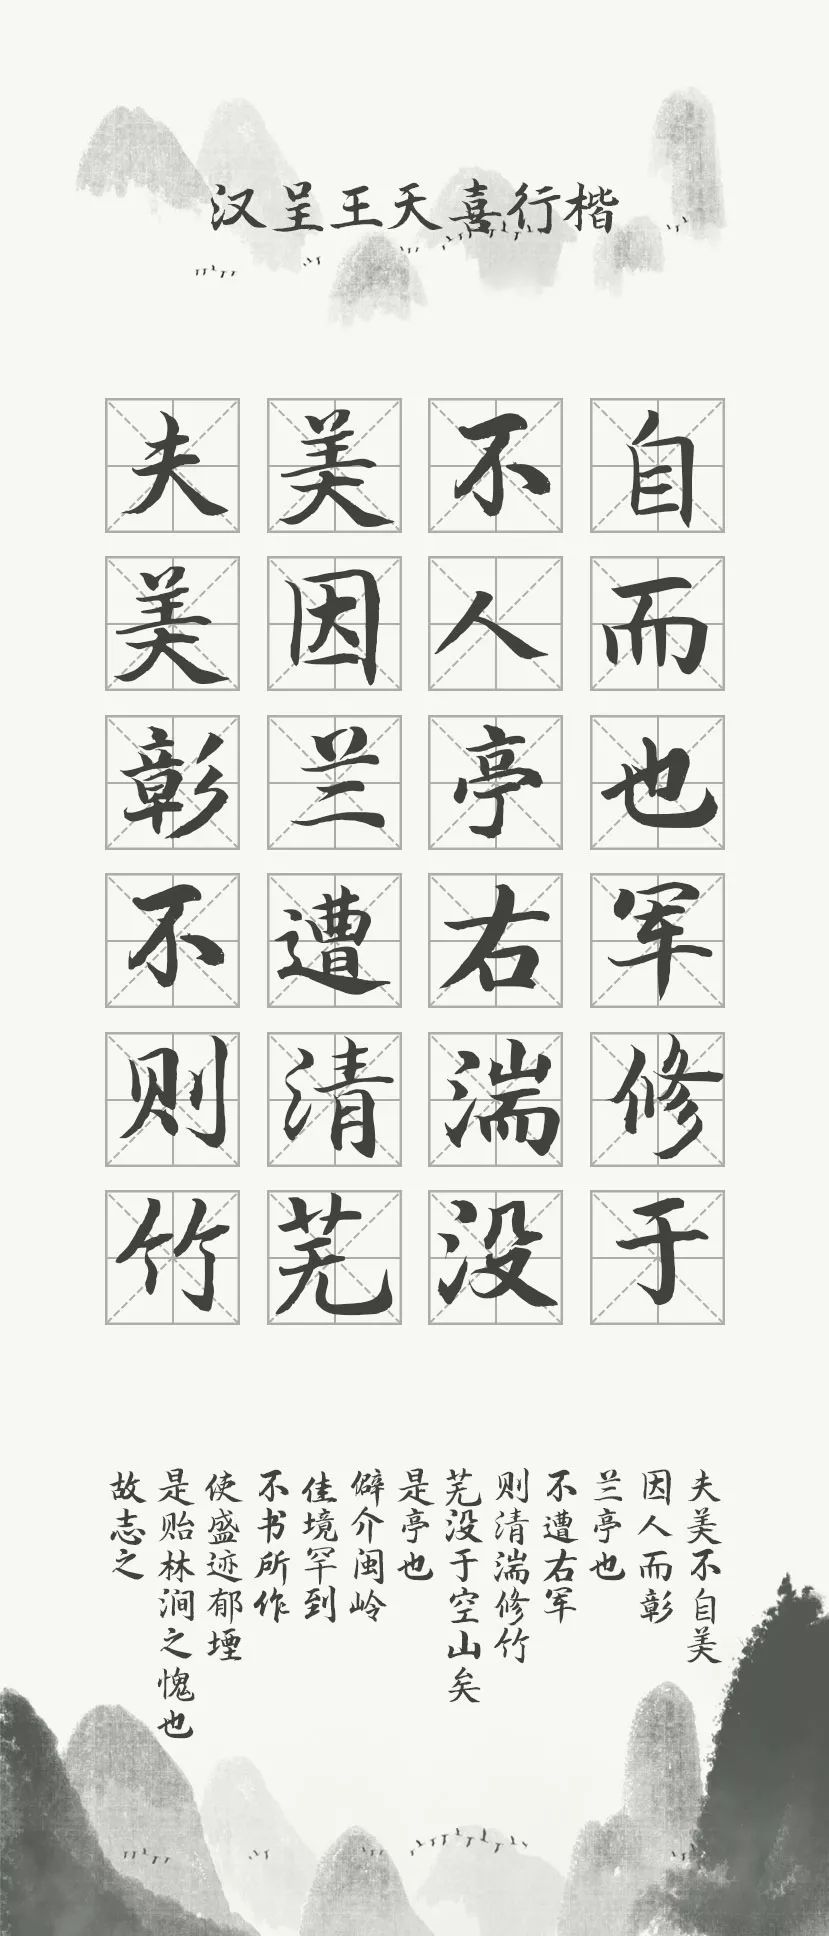 汉呈王天喜行楷
夫美不自
美因人而
彰兰亭也
不遭右军
则清湍修
竹芜没于
夫美不自美
因人而彰
兰亭也
不遭右军
则清湍修竹
芜没于空山矣
是亭也
僻介闽岭
佳境罕到
不书所作
使盛迹郁堙
是贻林涧之愧也
故志之